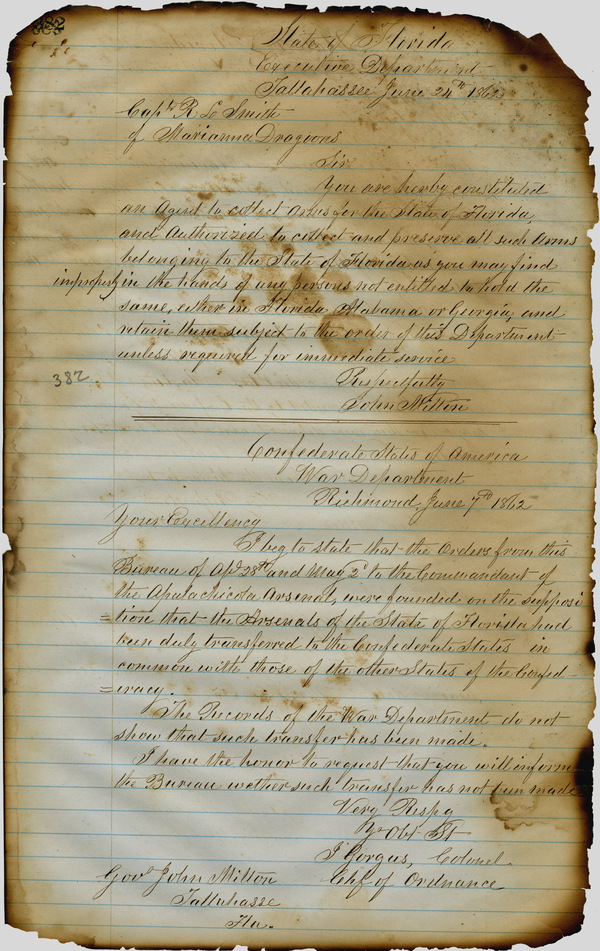 382
State of Florida
Executive Department
Tallahassee June 24th 1862
Capt R L Smith
of Marianna Dragoons
Sir
You are herby constituted
an Agent to collect Arms for the State of Florida,
and Authorized to collect and preserve all such Arms
belonging to the State of Florida as you may find
improperly in the hands of any persons not entitled to hold the
same, either in Florida, Alabama or Georgia, and
retain them subject to the order of this Department
unless required for immediate service
382
Respectfully
John Milton
Confederate States of America
War Department
Richmond June 7th 1862
Your Excellency
I beg to state that the Orders from this
Bureau of Apl 28th and May 2d to the Commandant of
the Apalachicola Arsenal, were founded on the supposi
=tion that the Arsenals of the State of Florida had
been duly transferred to the Confederate States in
common with those of the other States of the Confed
=eracy.
The Records of the War Department do not
show that such transfer has been made.
I have the honor to request that you will inform
the Bureau wether such transfer has not been made
Very Respy
Yr Obt St
J Gorgas, Colonel
Chf of Ordnance
Govr John Milton
Tallahasse
Fla.